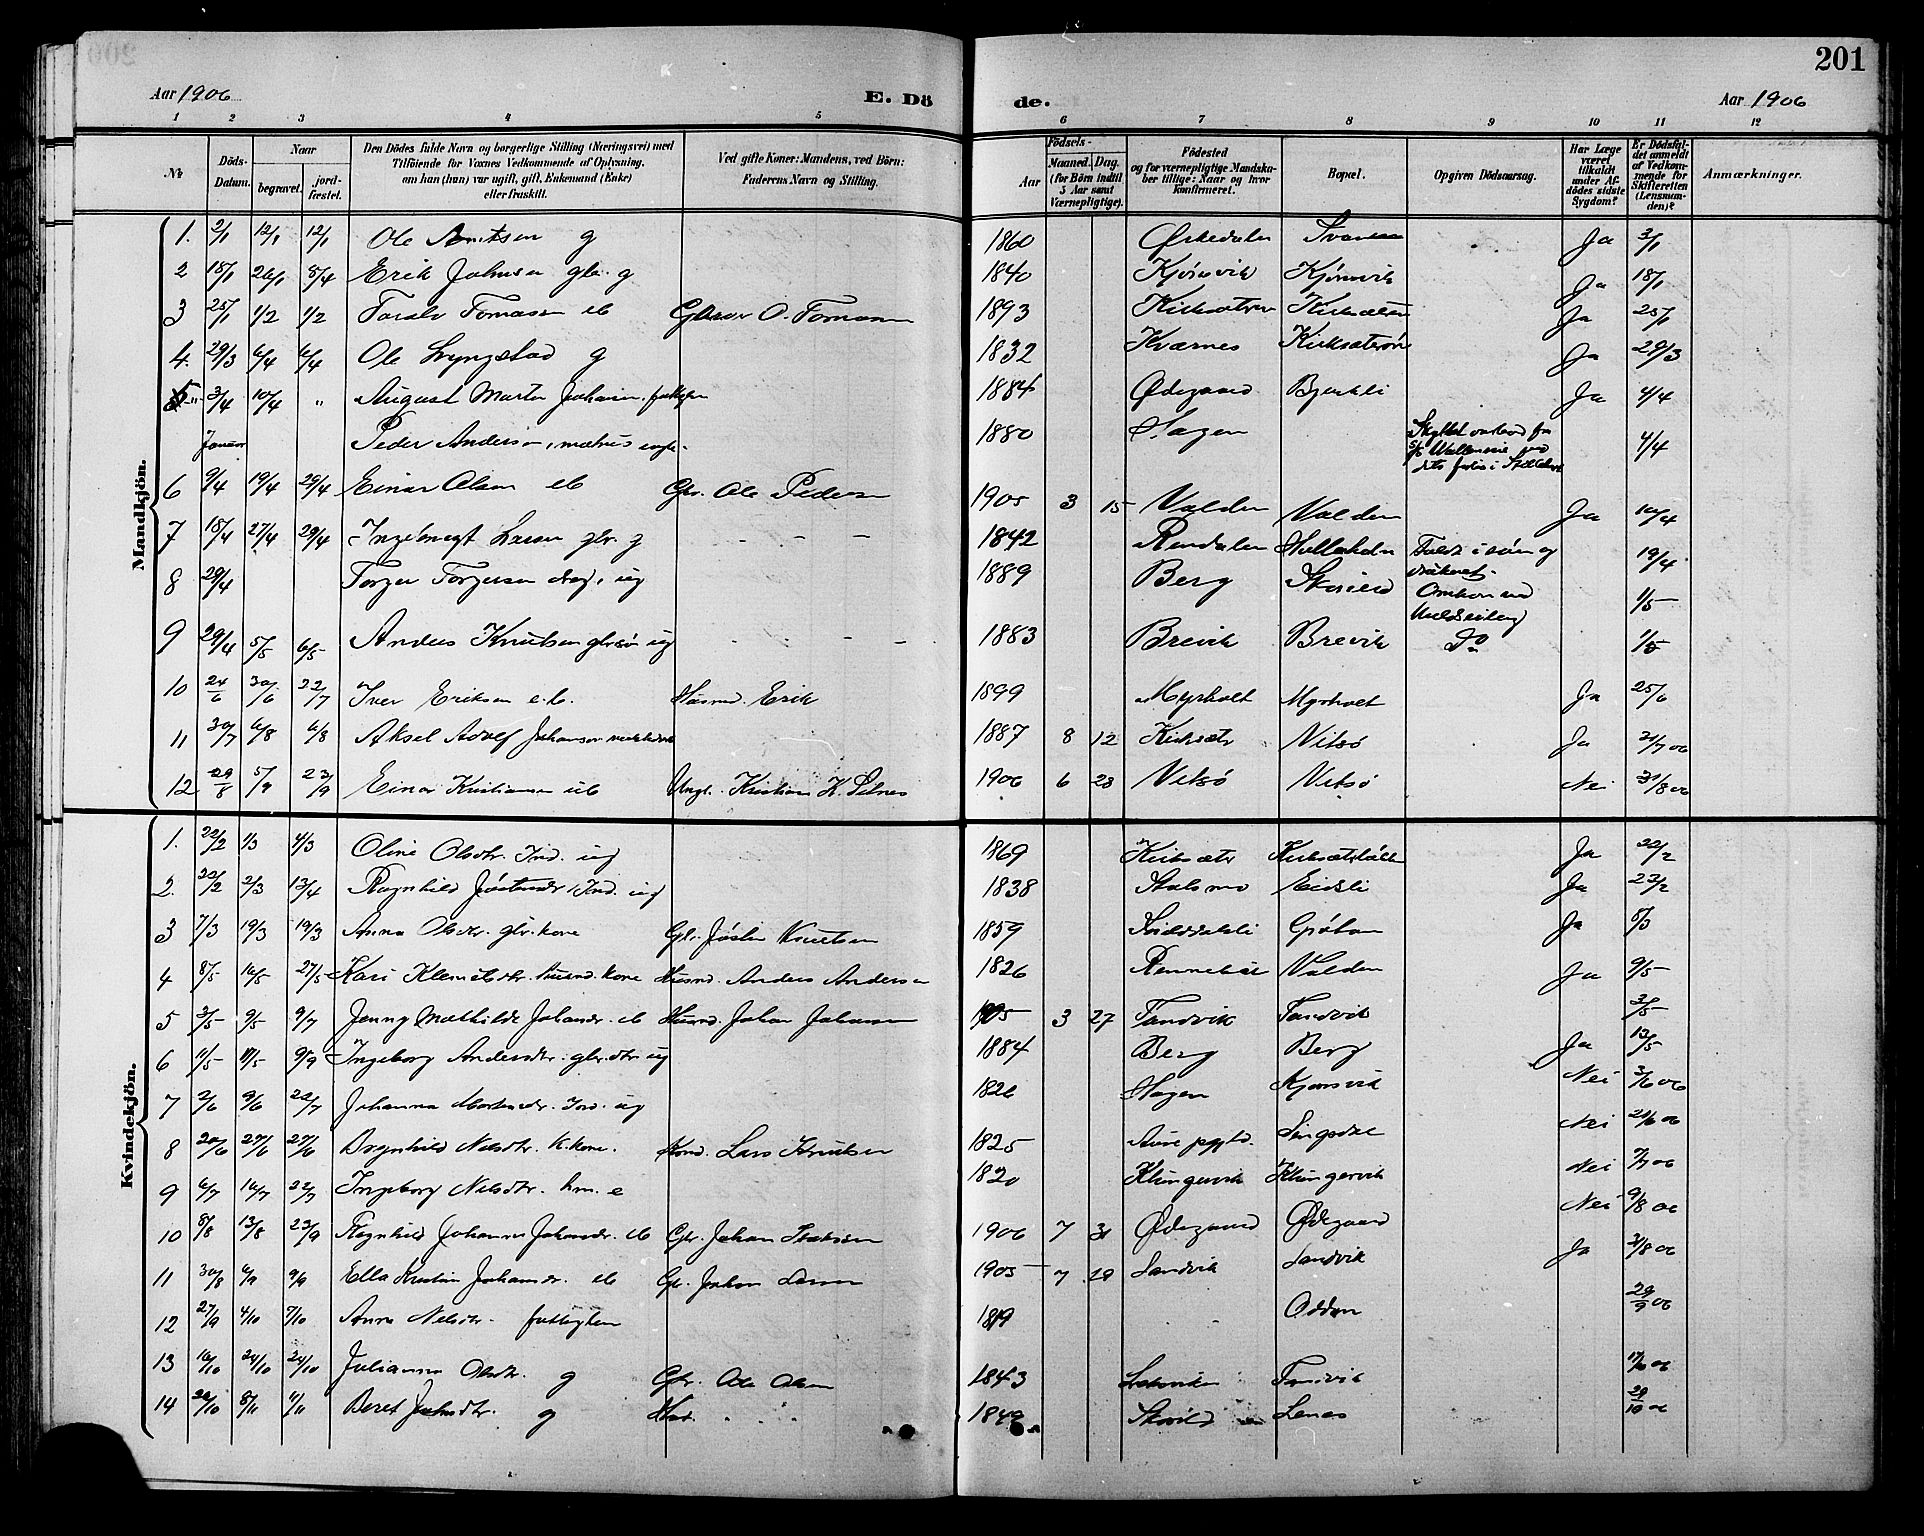 201
Aar 1906 E. Dö de. Aar 1906
1 2 3 4 5 6 7 8 9 10 11 12
No
Döds-Datum.
Naar
begravet.
jord-fæstet.
Den Dödes fulde Navn og borgerlige Stilling (Næringsvei) med
Tilföiende for Voxnes Vedkommende af Oplysning,
om han (hun) var ugift, gift, Enkemand (Enke)
eller fraskilt.
Ved gifte Koner: Mandens, ved Börn:
Faderens Navn og Stilling.
Födsels-
Aar
Maaned. Dag.
(for Börn indtil
5 Aar samt
Værnepligtige).
Födested
og for værnepligtige Mandska-
ber tillige: Naar og hvor
konfirmeret.
Bopæl.
Opgiven Dödsaarsag.
Har Læge
været
tilkaldt
under Af-
dödes sidste
Sygdom?
Er Dödsfal-
det anmeldt
af Vedkom-
mende for
Skifteretten
(Lensman-
den)?
Anmærkninger.
Mandkjön.
1. 2/1 12/1 12/1 Ole Arntsen g 1860 Ørkedalen Ja 3/1
2 18/1 26/1 8/4 Erik Johnsen gbr. g 1840 Kjørsvik Kjørsvik Ja 18/1
3 25/1 1/2 1/2 Tomasen eb O. Tomasen 1893 Kirksæteren Kirksæteren Ja 25/1
4. 29/3 6/4 6/4 Ole Lyngstad g 1832 Kværnes Kirksæterøn Ja 29/3
5 3/4 10/4 " August Martin Johansen 1884 Ødegaard Bjerkli Ja 4/4
Januar Peder Andersen, matros 1880 Hagen 4/4
6 9/4 19/4 29/4 Einar Olsen eb Gbr. Ole Pedersen 1905 3 15 Valden Valden Ja 10/4
7 18/4 27/4 29/4 Ingebregt Larsen gbr. g - - - 1842 Rendalen Faldt i søen og druknet. 19/4
8 29/4 Torger Torgersen ug 1889 Berg Omkom ved 1/5
9 29/4 5/5 6/5 Anders Knutsen gbrsøn ug - - - 1883 Brevik Brevik Do 1/5
10 24/6 30/6 22/7 Iver Eriksen e.b. Husmd. Erik 1899 Myrholt Myrholt Ja 25/6
11 30/7 6/8 6/8 Aksel Adolf Johansen 1887 8 12 Kirksæter Vitsø Ja 31/7 06
12 29/8 5/9 23/9 Einar Kristiansen ueb Ungk. Kristian K. Selnes 1906 6 28 Vitsø Vitsø Nei 31/8 06
Kvindekjön.
1. 22/2 1/3 4/3 Oline Olsdtr. Ind. ug 1869 Kirksæter Ja 22/2
2. 22/2 2/3 13/4 Ragnhild Jøstensdtr Ind. ug 1838 Stølsmo Eidsli Ja 23/2
3 7/3 19/3 19/3 Anna Olsdtr. gbr. kone Gbr. Jøsten Knutsen 1859 Ja 8/3
4 8/5 16/5 27/5 Kari Klemetsdtr. Husmd. kone Husmd. Anders Andersen 1826 Rennebu Valden Ja 9/5
5 3/5 9/5 9/7 Jenny Mathilde Johansdr. eb Husmd. Johan Johansen 1905 3 27 Sandvik Sandvik 3/5
6 11/5 17/5 9/9 Ingeborg Andersdtr. gbr.dtr ug 1884 Berg Berg Ja 13/5
7 2/6 9/6 22/7 Johanna Mortensdr. Ind. ug 1826 Hagen Kjørsvik Nei 3/6 06
8 20/6 27/6 27/6 Nilsdtr. K.kone. Lars Knutsen 1825 Aure pgjld. Nei 21/6 06
9 6/7 16/7 22/7 Ingeborg Nilsdtr. e 1820 Klungervik Klungervik Nei 7/7 06
10 8/8 13/8 23/9 Ragnhild Johanna Johansdr. eb Gbr. Johan 1906 7 31 Ødegaard Ødegaard Nei 9/8 06
11 30/8 6/9 9/9 Ella Kristine Johansdr. eb Gbr. Johan Larsen 1905 7 29 Sandvik Sandvik Ja 31/8 06
12 27/9 4/10 7/10 Anne Nilsdtr. fattiglem 1819 Odden 29/9 06
13 16/10 24/10 24/10 Julianna Olsdtr. g Gbr. Ole Olsen 1843 17/10 06
14 8/11 11/11 Beret Johnsdtr. g " " 1849 Lenes 29/10